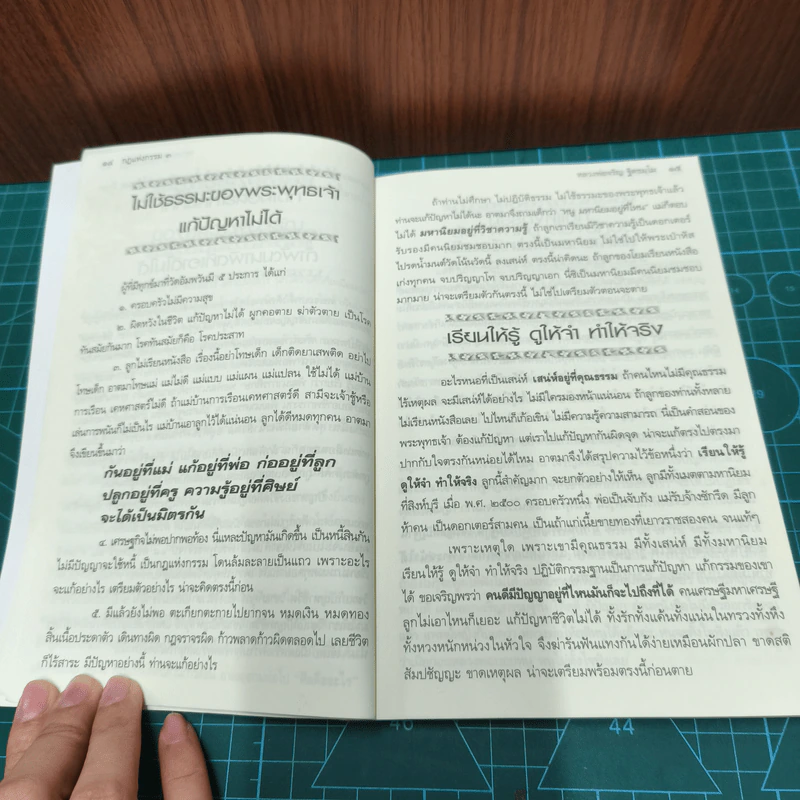 ๓๔ กฎแห่งกรรม ๓
ไม่ใช้ธรรมะของพระพุทธเจ้า
แก้ปัญหาไม่ได้
ผู้ที่มีทุกข์มาที่วัดอัมพวันมี ๕ ประการ ได้แก่
๑. ครอบครัวไม่มีความสุข
๒. ผิดหวังในชีวิต แก้ปัญหาไม่ได้ ผูกคอตาย ฆ่าตัวตาย เป็นโรค
ทันสมัยกันมาก โรคทันสมัยก็คือ โรคประสาท
๓. ลูกไม่เรียนหนังสือ เรื่องนี้อย่าโทษเด็ก เด็กติดยาเสพติด อย่าไป
โทษเด็ก อาตมาโทษแม่ แม่ไม่ดี แม่แบบ แม่แผน แม่แปลน ใช้ไม่ได้ แม่บ้าน
การเรือน เคหศาสตร์ไม่ดี ถ้าแม่บ้านการเรือนเคหศาสตร์ดี สามีจะเจ้าชู้หรือ
เล่นการพนันก็ไม่เป็นไร แม่บ้านเอาลูกไว้ได้แน่นอน ลูกได้ดีหมดทุกคน อาตมา
จึงเขียนขึ้นมาว่า
กันอยู่ที่แม่ แก้อยู่ที่พ่อ ก่ออยู่ที่ลูก
ปลูกอยู่ที่ครู ความรู้อยู่ที่ศิษย์
จะได้เป็นมิตรกัน
๔. เศรษฐกิจไม่พอปากพอท้อง นี่แหละปัญหามันเกิดขึ้น เป็นหนี้สินกัน
ไม่มีปัญญาจะใช้หนี้ เป็นกฎแห่งกรรม โดนล้มละลายเป็นแถว เพราะอะไร
จะแก้อย่างไร เตรียมตัวอย่างไร น่าจะคิดตรงนี้ก่อน
๕. มีแล้วยังไม่พอ ตะเกียกตะกายไปยากจน หมดเงิน หมดทอง
สิ้นเนื้อประดาตัว เดินทางผิด กฎจราจรผิด ก้าวพลาดก้าวผิดตลอดไป เลยชีวิต
ก็ไร้สาระ มีปัญหาอย่างนี้ ท่านจะแก้อย่างไร
หลวงพ่อจรัญ ฐิตธมฺโม ๓๕
ถ้าท่านไม่ศึกษา ไม่ปฏิบัติธรรม ไม่ใช้ธรรมะของพระพุทธเจ้าแล้ว
ท่านจะแก้ปัญหาไม่ได้นะ อาตมาจึงถามเด็กว่า "หนู มหานิยมอยู่ที่ไหน" แม่ก็ตอบ
ไม่ได้ มหานิยมอยู่ที่วิชาความรู้ ถ้าลูกเราเรียนมีวิชาความรู้เป็นดอกเตอร์
รับรองมีคนนิยมชมชอบมาก ตรงนี้เป็นมหานิยม ไม่ใช่ไปให้พระเป่าหัว
โปรดน้ำมนต์วัดโน้นวัดนี้ ลงเสน่ห์ ตรงนี้น่าคิดนะ ถ้าลูกของโยมเรียนหนังสือ
เก่งทุกคน จบปริญญาโท จบปริญญาเอก นี่ซิเป็นมหานิยมมีคนนิยมชมชอบ
มากมาย น่าจะเตรียมตัวกันตรงนี้ ไม่ใช่ไปเตรียมตัวตอนจะตาย
เรียนให้รู้ ดูให้จำ ทำให้จริง
อะไรหนอที่เป็นเสน่ห์ เสน่ห์อยู่ที่คุณธรรม ถ้าคนไหนไม่มีคุณธรรม
ไร้เหตุผล จะมีเสน่ห์ได้อย่างไร ไม่มีใครมองหน้าแน่นอน ถ้าลูกของท่านทั้งหลาย
ไม่เรียนหนังสือเลย ไปไหนก็เก้อเขิน ไม่มีความรู้ความสามารถ นี่เป็นคำสอนของ
พระพุทธเจ้า ต้องแก้ปัญหา แต่เราไปแก้ปัญหากันผิดจุด น่าจะแก้ตรงไปตรงมา
ปากกับใจตรงกันหน่อยได้ไหม อาตมาจึงได้สรุปความไว้ข้อหนึ่งว่า เรียนให้รู้
ดูให้จำ ทำให้จริง ลูกนี้สำคัญมาก จะยกตัวอย่างให้เห็น ลูกมีทั้งเมตตามหานิยม
ที่สิงห์บุรี เมื่อ พ.ศ. ๒๕๐๐ ครอบครัวหนึ่ง พ่อเป็นจับกัง แม่รับจ้างซักรีด มีลูก
ห้าคน เป็นดอกเตอร์สามคน เป็นเถ้าแก่เนี้ยขายทองที่เยาวราชสองคน จนแท้ๆ
เพราะเหตุใด เพราะเขามีคุณธรรม มีทั้งเสน่ห์ มีทั้งมหานิยม
เรียนให้รู้ ดูให้จำ ทำให้จริง ปฏิบัติกรรมฐานเป็นการแก้ปัญหา แก้กรรมของเขา
ได้ ขอเจริญพรว่า คนดีมีปัญญาอยู่ที่ไหนมันก็จะไปถึงที่ได้ คนเศรษฐีมหาเศรษฐี
ลูกไม่เอาไหนก็เยอะ แก้ปัญหาชีวิตไม่ได้ ทั้งรักทั้งแค้นทั้งแน่นในทรวงทั้งหึง
ทั้งหวงหนักหน่วงในหัวใจ จึงฆ่ารันฟันแทงกันได้ง่ายเหมือนผักปลา ขาดสติ
สัมปชัญญะ ขาดเหตุผล น่าจะเตรียมพร้อมตรงนี้ก่อนตาย
46
44